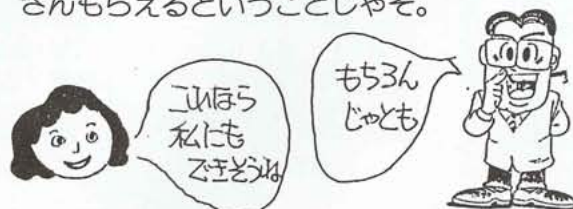 さんもらえるということじゃぞ。
これなら
私にも
できそうね
もちろん
じゃとも